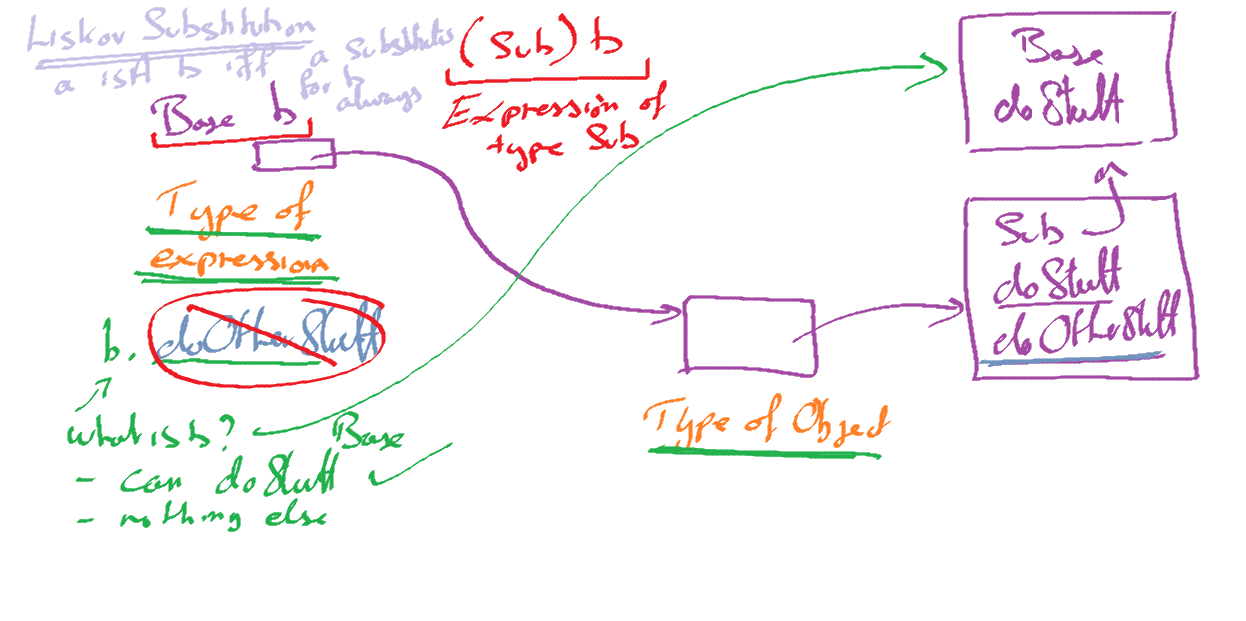 Liskov Substitution
a isA b iff a substitutes
for b
always
Base b
(Sub) b
Expression of
type Sub
Type of
expression
b. doOtherStuff
what is b? Base
- can doStuff ✓
- nothing else
Type of Object
Base
doStuff
Sub
doStuff
doOtherStuff